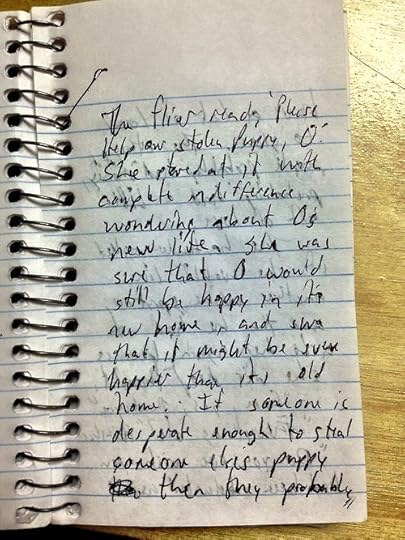 The flier read, "Please
Help our stolen puppy, O."
She stared at it with
complete indifference,
wondering about Os
new life. She was
sure that O would
still be happy in its
new home, and
that it might be even
happier than its old
home. If someone is
desperate enough to steal
someone elses puppy
then they probably